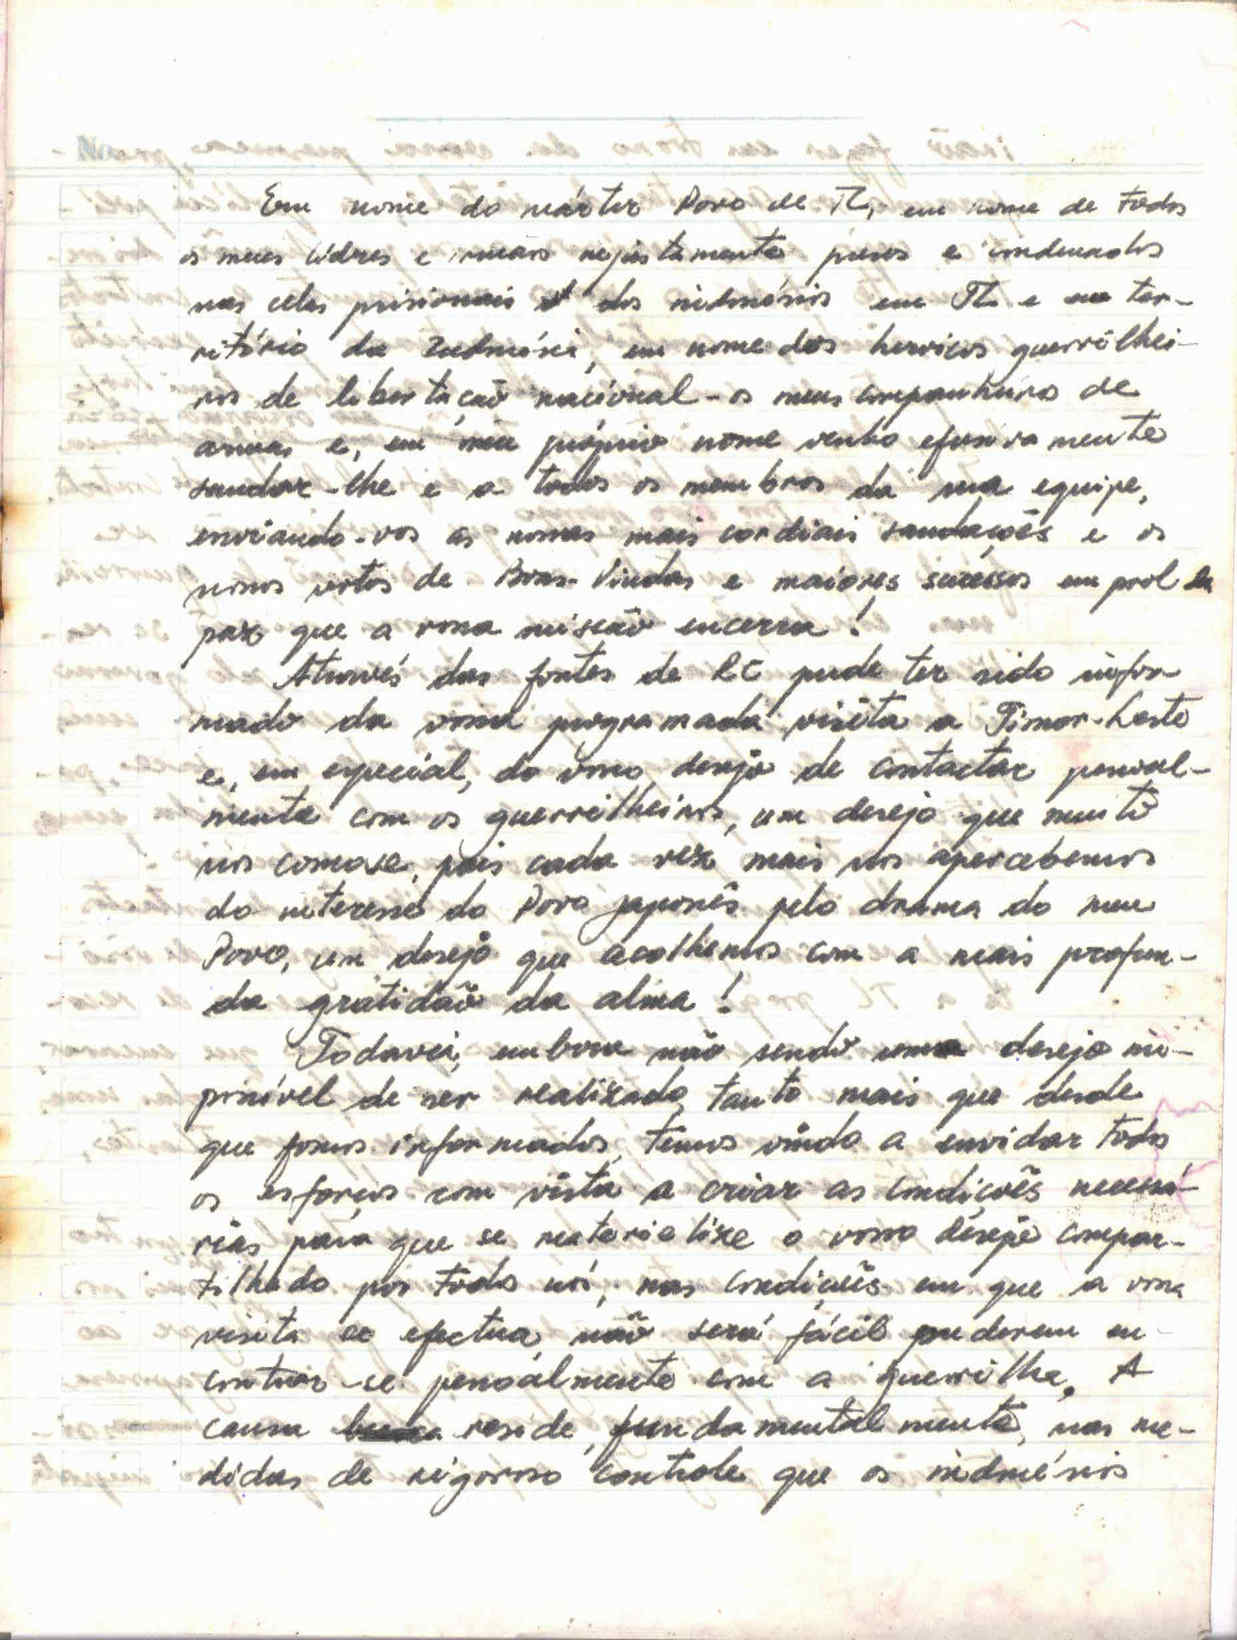 Em nome do mártir Povo de TL, em nome de todos
os meus líderes e irmãos injustamente presos e condenados
nas celas prisionais dos indonésios em TL e em ter-
ritório da Indonésia, em nome dos heróicos guerrilhei-
ros de libertação nacional - os meus companheiros de
armas e, em meu próprio nome venho efusivamente
saudar-lhe e a todos os membros da sua equipe,
enviando-vos as nossas mais cordiais saudações e os
nossos votos de Boas-Vindas e maiores sucessos em prol da
paz que a vossa missão encerra!
Através das fontes de RC pude ter sido infor-
mado da vossa programada visita a Timor-Leste
e, em especial, do vosso desejo de contactar pessoal-
mente com os guerrilheiros, um desejo que muito
nos comove, pois cada vez mais nos apercebemos
do interesse do Povo japonês pelo drama do meu
Povo, um desejo que acolhemos com a mais profun-
da gratidão da alma!
Todavia, embora não sendo um desejo im-
possível de ser realizado, tanto mais que desde
que fomos informados, temos vindo a envidar todos
os esforços com vista a criar as condições necessá-
rias para que se materialize o vosso desejo compar-
tilhado por todos nós, nas condições em que a vossa
visita se efectua, não será fácil puderem en-
contrar-se pessoalmente com a guerrilha. A
causa reside, fundamentalmente, nas me-
didas de rigoroso controle que os indonésios